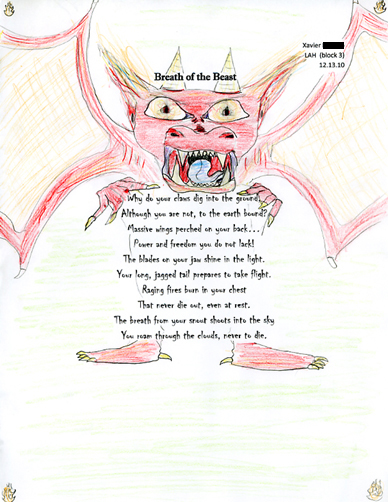 Xavier
LAH (block 3)
12.13.10
Breath of the Beast
Why do your claws dig into the ground,
Although you are not, to the earth bound?
Massive wings perched on your back...
Power and freedom you do not lack!
The blades on your jaw shine in the light.
Your long, jagged tail prepares to take flight.
Raging fires burn in your chest
That never die out, even at rest.
The breath from your snout shoots into the sky
You roam through the clouds, never to die.